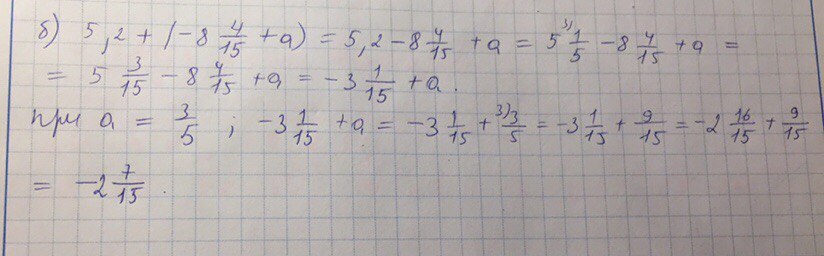 б) 5,2 + (-8 4/15 + a) = 5,2 - 8 4/15 + a = 5 ³⁾1/5 - 8 4/15 + a =
= 5 3/15 - 8 4/15 + a = -3 1/15 + a.
при a = 3/5 ; -3 1/15 + a = -3 1/15 + ³⁾3/5 = -3 1/15 + 9/15 = -2 16/15 + 9/15
= -2 7/15.